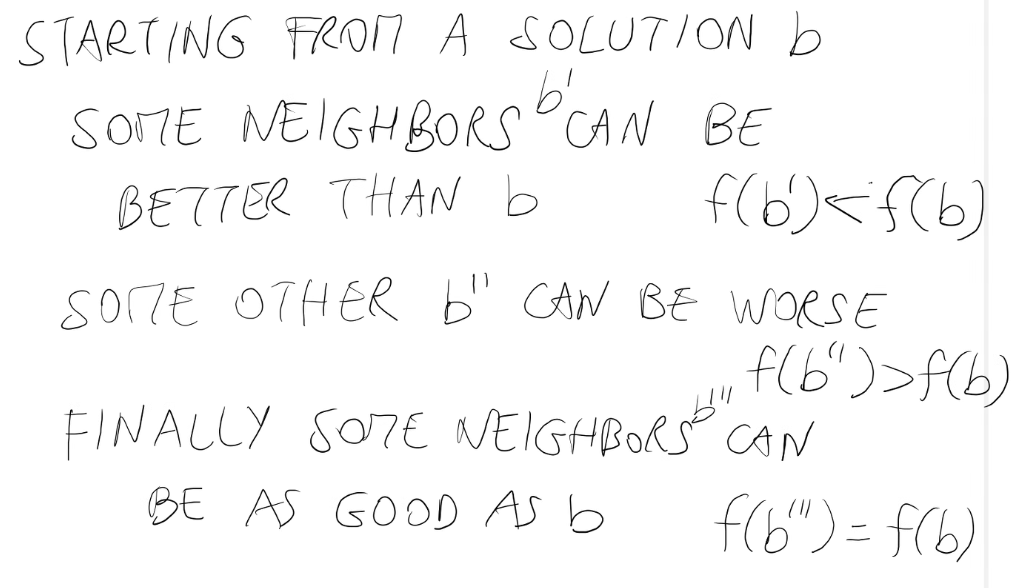 STARTING FROM A SOLUTION b
SOME NEIGHBORS b' CAN BE
BETTER THAN b f(b')<f(b)
SOME OTHER b'' CAN BE WORSE
f(b'')>f(b)
FINALLY SOME NEIGHBORS b''' CAN
BE AS GOOD AS b f(b''')=f(b)